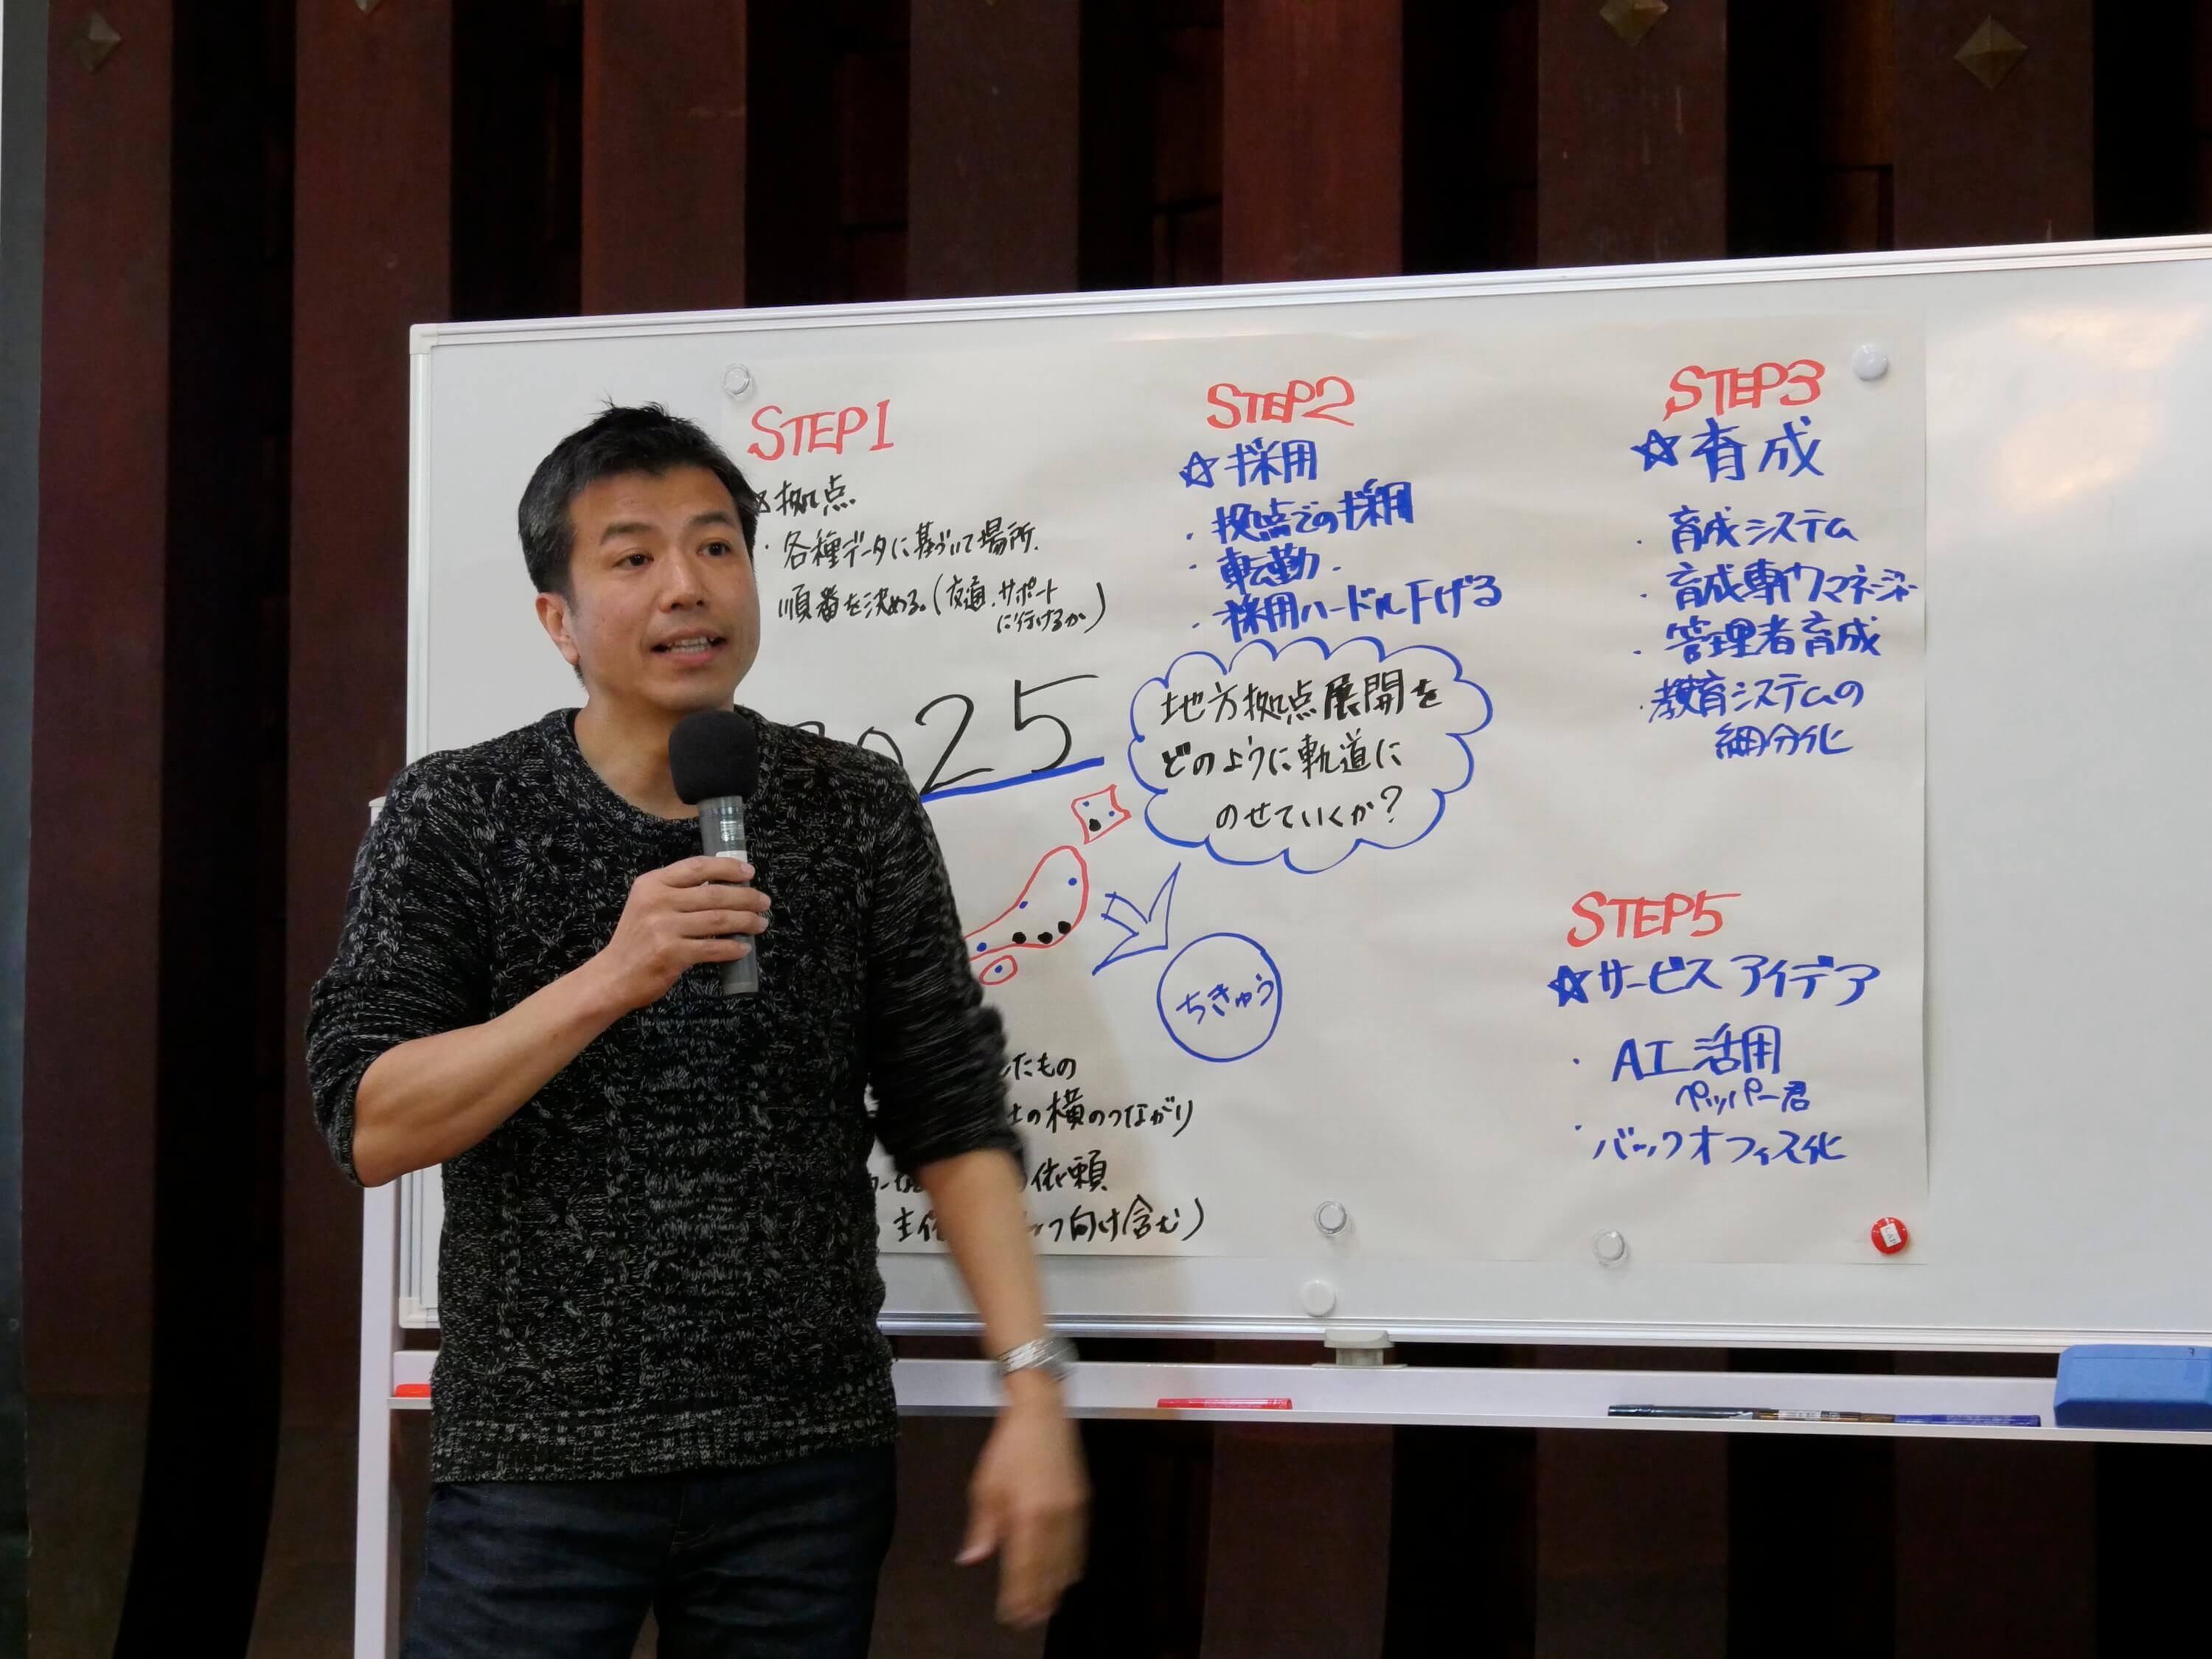 STEP1
☆拠点
・各種データに基づいて場所、
順番を決める。(交通、サポート
に行けるか)
STEP2
☆採用
・拠点での採用
・転勤
・採用ハードル下げる
STEP3
☆育成
・育成システム
・育成専門マネージャー
・管理者育成
・教育システムの
細分化
2025
地方拠点展開を
どのように軌道に
のせていくか?
ちきゅう
たもの
の横のつながり
依頼
向け含む)
STEP5
☆サービスアイデア
・AI活用
ペッパー君
・バックオフィス化